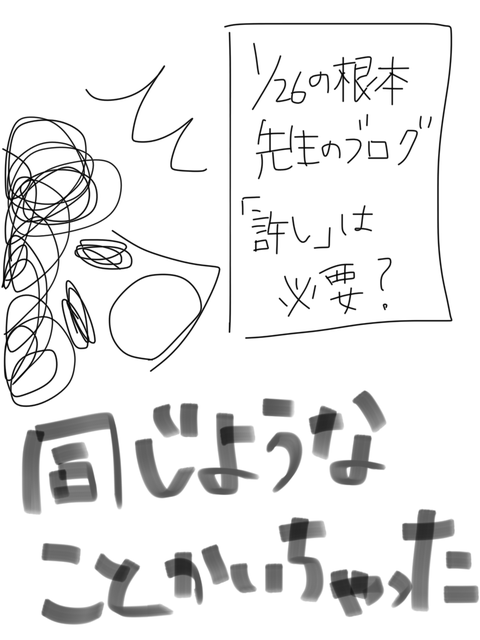 1/26の根本
先生のブログ
「許し」は
必要?
同じような
ことかいちゃった